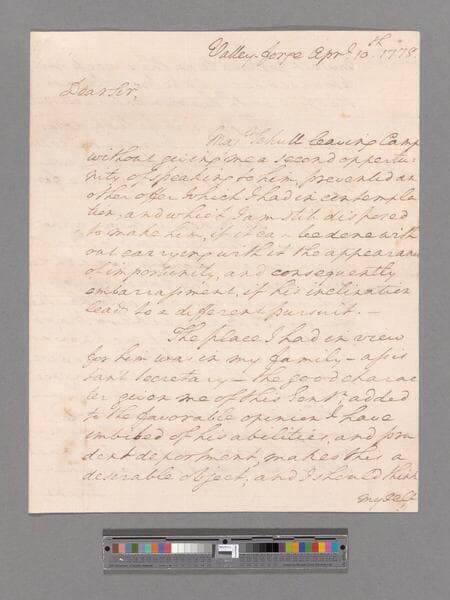 Valley-forge Apr.l 10.th 1778.
Dear Sir,
Maj.r Jekull leaving Camp
without giving me a second opportu-
nity of speaking to him, prevented an
other offer which I had in contempla
tion, and which I am still disposed
to make him, if it can be done with
out carrying with it the appearance
of importunity, and consequently
embarrassment, if his inclination
leads to a different pursuit. —
The place I had in view
for him was in my family — assis
tant Secretary — the good charac
ter given me of this Gent.n, added
to the favorable opinion I have
imbibed of his abilities, and pru
dent deportment, makes this a
desirable object, and I should think
myself